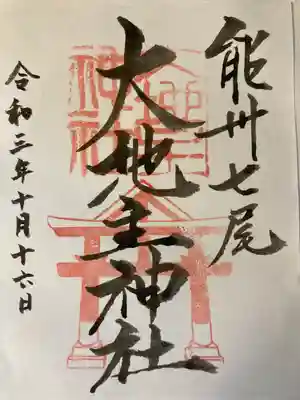 能州七尾
大地主神社
令和三年十月十六日